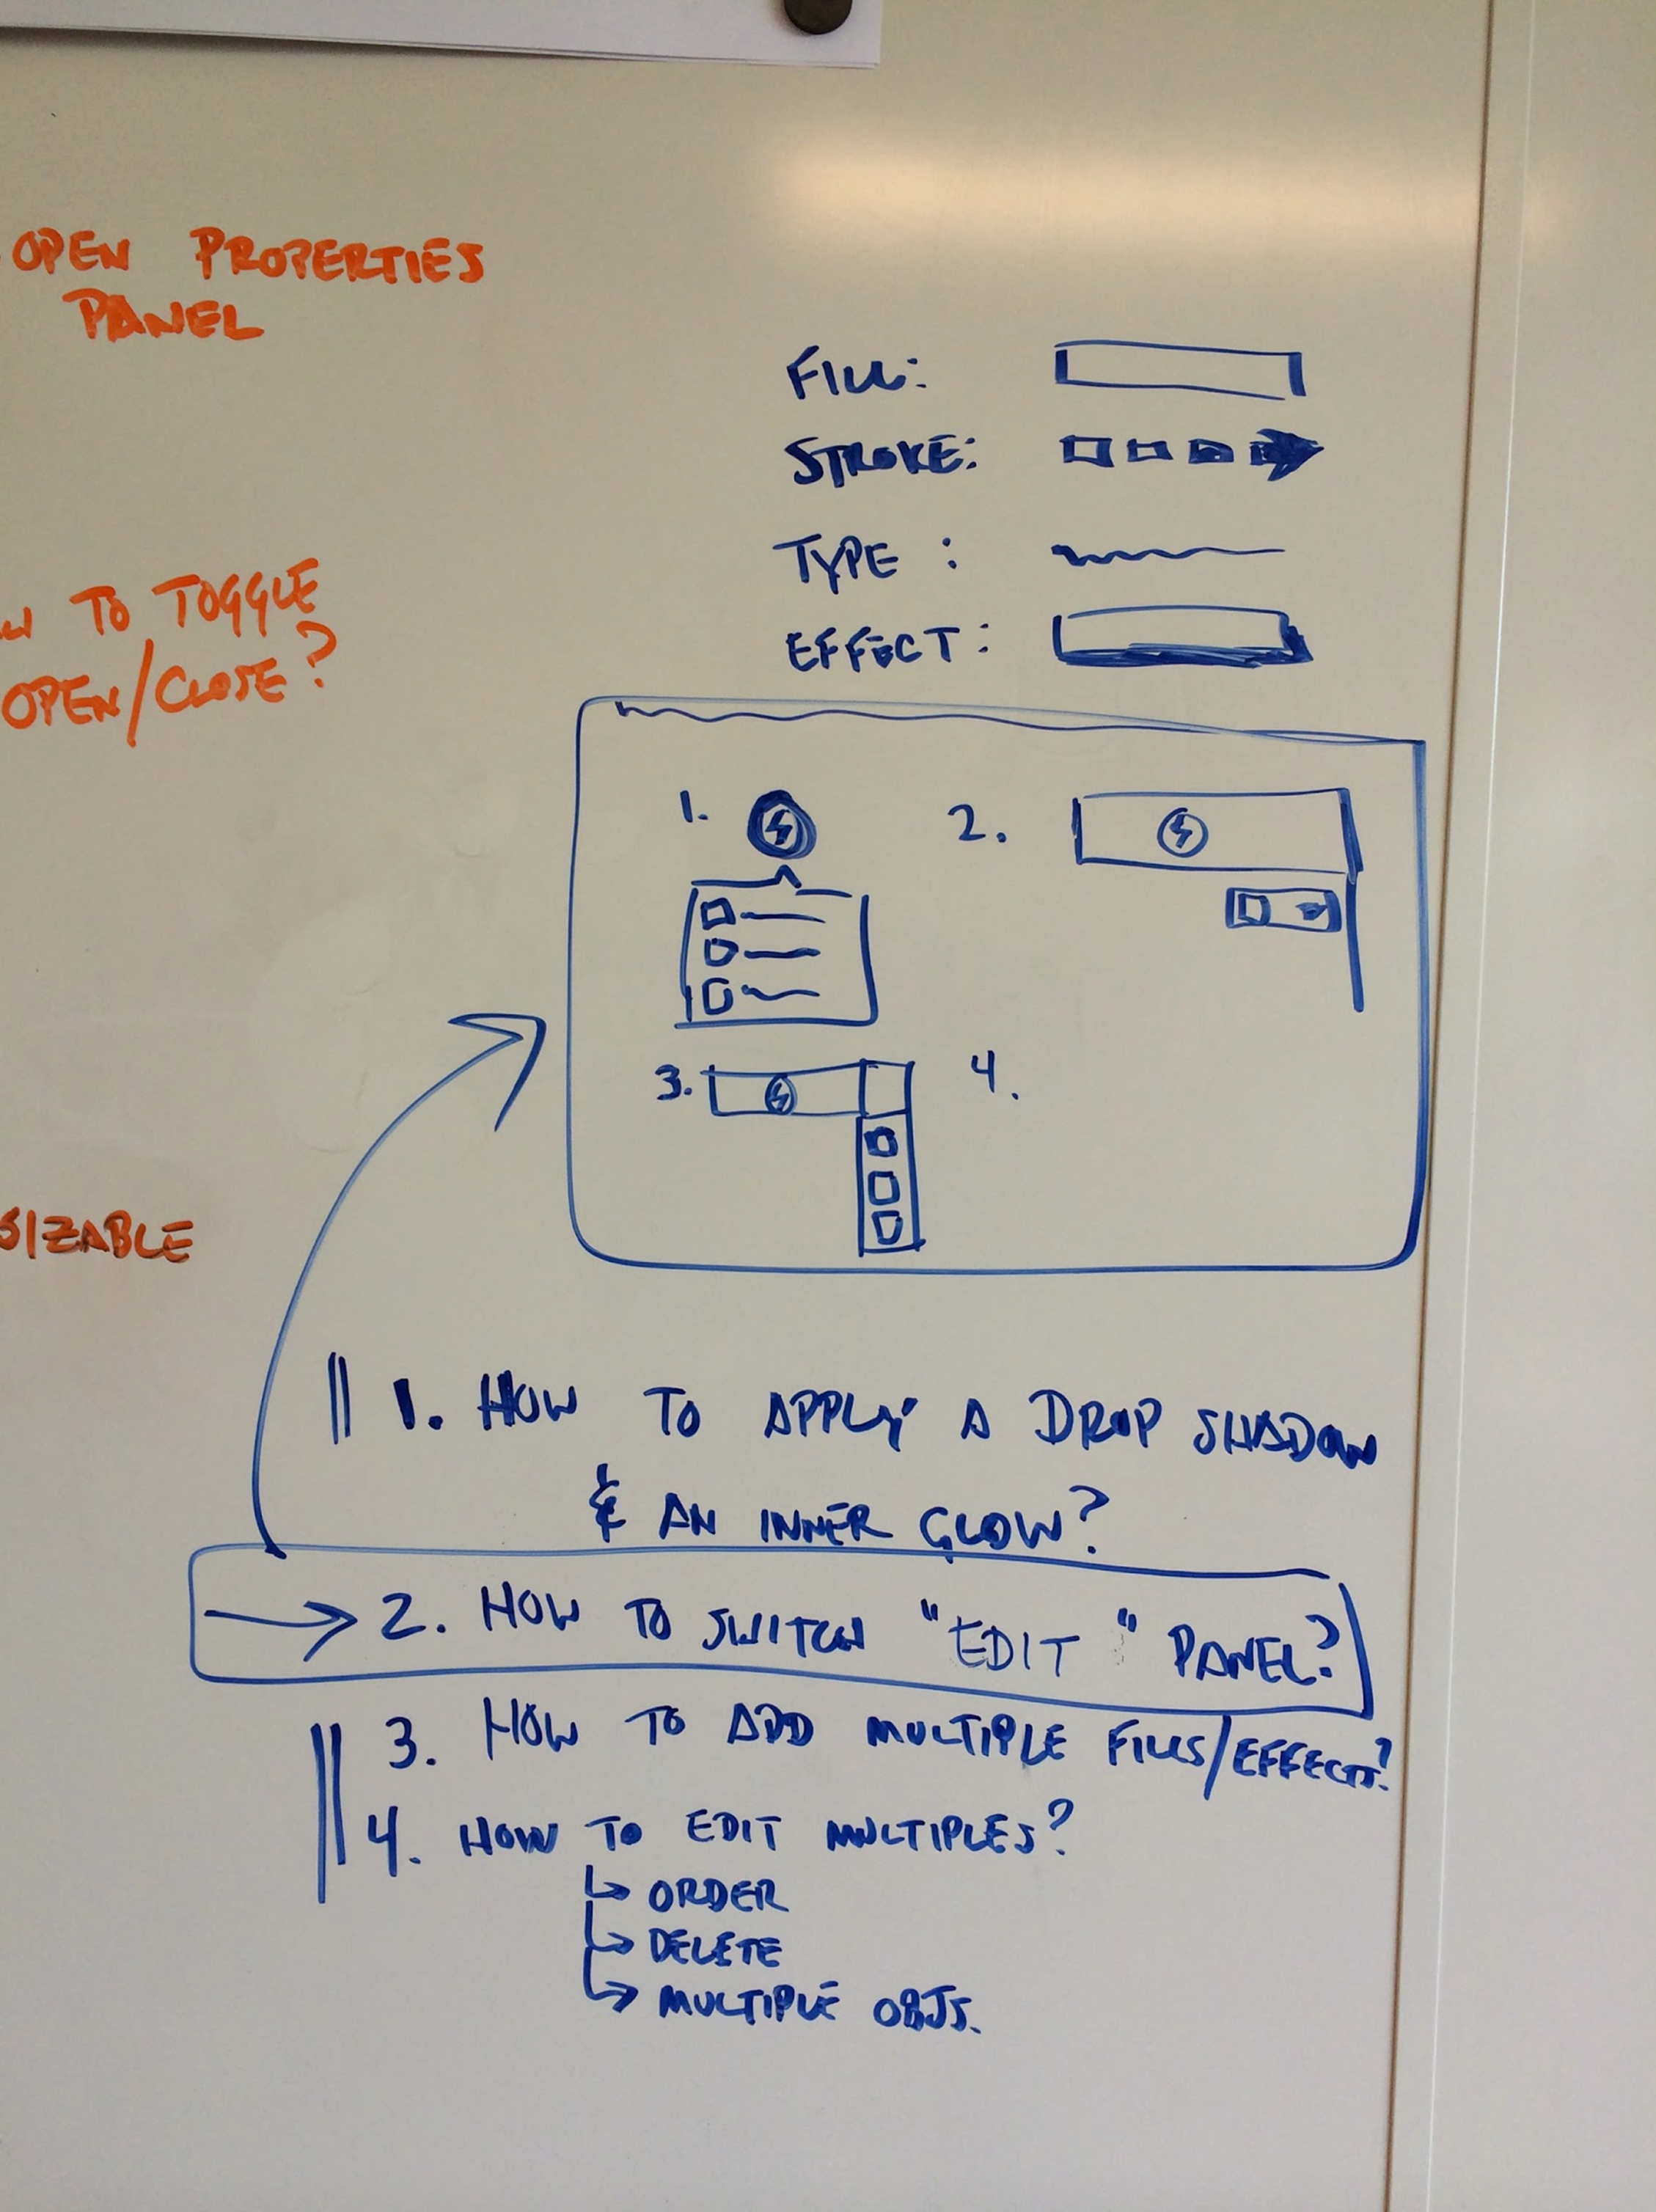 OPEN PROPERTIES
PANEL
TO TOGGLE
OPEN/CLOSE?
SIZABLE
FILL:
STROKE:
TYPE :
EFFECT:
1.
2.
3.
4.
1. HOW TO APPLY A DROP SHADOW
& AN INNER GLOW?
2. HOW TO SWITCH "EDIT" PANEL?
3. HOW TO ADD MULTIPLE FILLS/EFFECTS?
4. HOW TO EDIT MULTIPLES?
ORDER
DELETE
MULTIPLE OBJS.